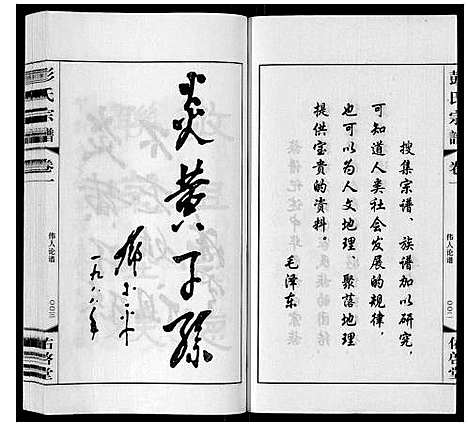 彭氏宗譜
卷一
伟人论谱
〇〇二
佑啓堂
搜集宗谱、族谱加以研究,
可知道人类社会发展的规律,
也可以为人文地理、聚落地理
提供宝贵的资料。
毛泽东
炎黄子孙
邓小平
一九八八年
彭氏宗譜
卷一
伟人论谱
佑啓堂